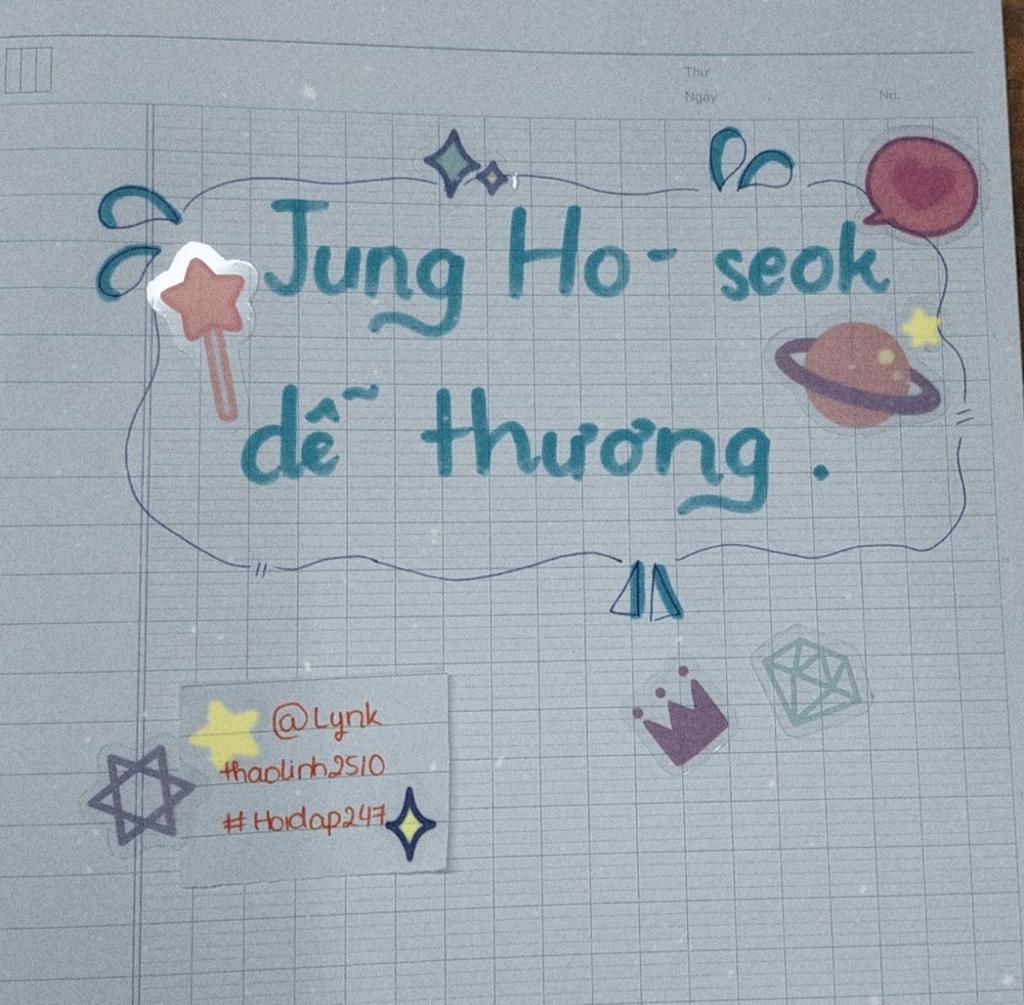 Thứ
Ngày . No.
Jung Ho-seok
dễ thương.
@Lynk
thaolinh2510
#Hoidap247